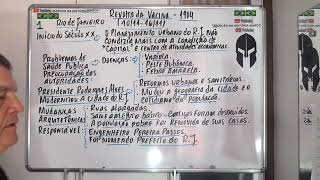 REVOLTA DA VACINA - 1904
RIO DE JANEIRO
INÍCIO DO SÉCULO XX
O PLANEJAMENTO URBANO DO R.J. NÃO
CONDIZIA MAIS COM A CONDIÇÃO DE
"CAPITAL" E CENTRO DE ATIVIDADES ECONÔMICAS.
PROBLEMAS DE
SAÚDE PÚBLICA
PREOCUPAÇÃO DAS
AUTORIDADES
DOENÇAS
VARÍOLA
PESTE BUBÔNICA
FEBRE AMARELA
PRESIDENTE RODRIGUES ALVES
MODERNIZOU A CIDADE DO R.J.
REFORMAS URBANAS E SANITÁRIAS.
MUDOU A GEOGRAFIA DA CIDADE E O
COTIDIANO DA POPULAÇÃO.
MUDANÇAS
ARQUITETÔNICAS
RUAS ALARGADAS.
SANEAMENTO BÁSICO - CORTIÇOS FORAM DESTRUÍDOS.
A POPULAÇÃO POBRE FOI REMOVIDA DE SUAS CASAS.
RESPONSÁVEL:
ENGENHEIRO PEREIRA PASSOS.
FOI NOMEADO PREFEITO DO R.J.